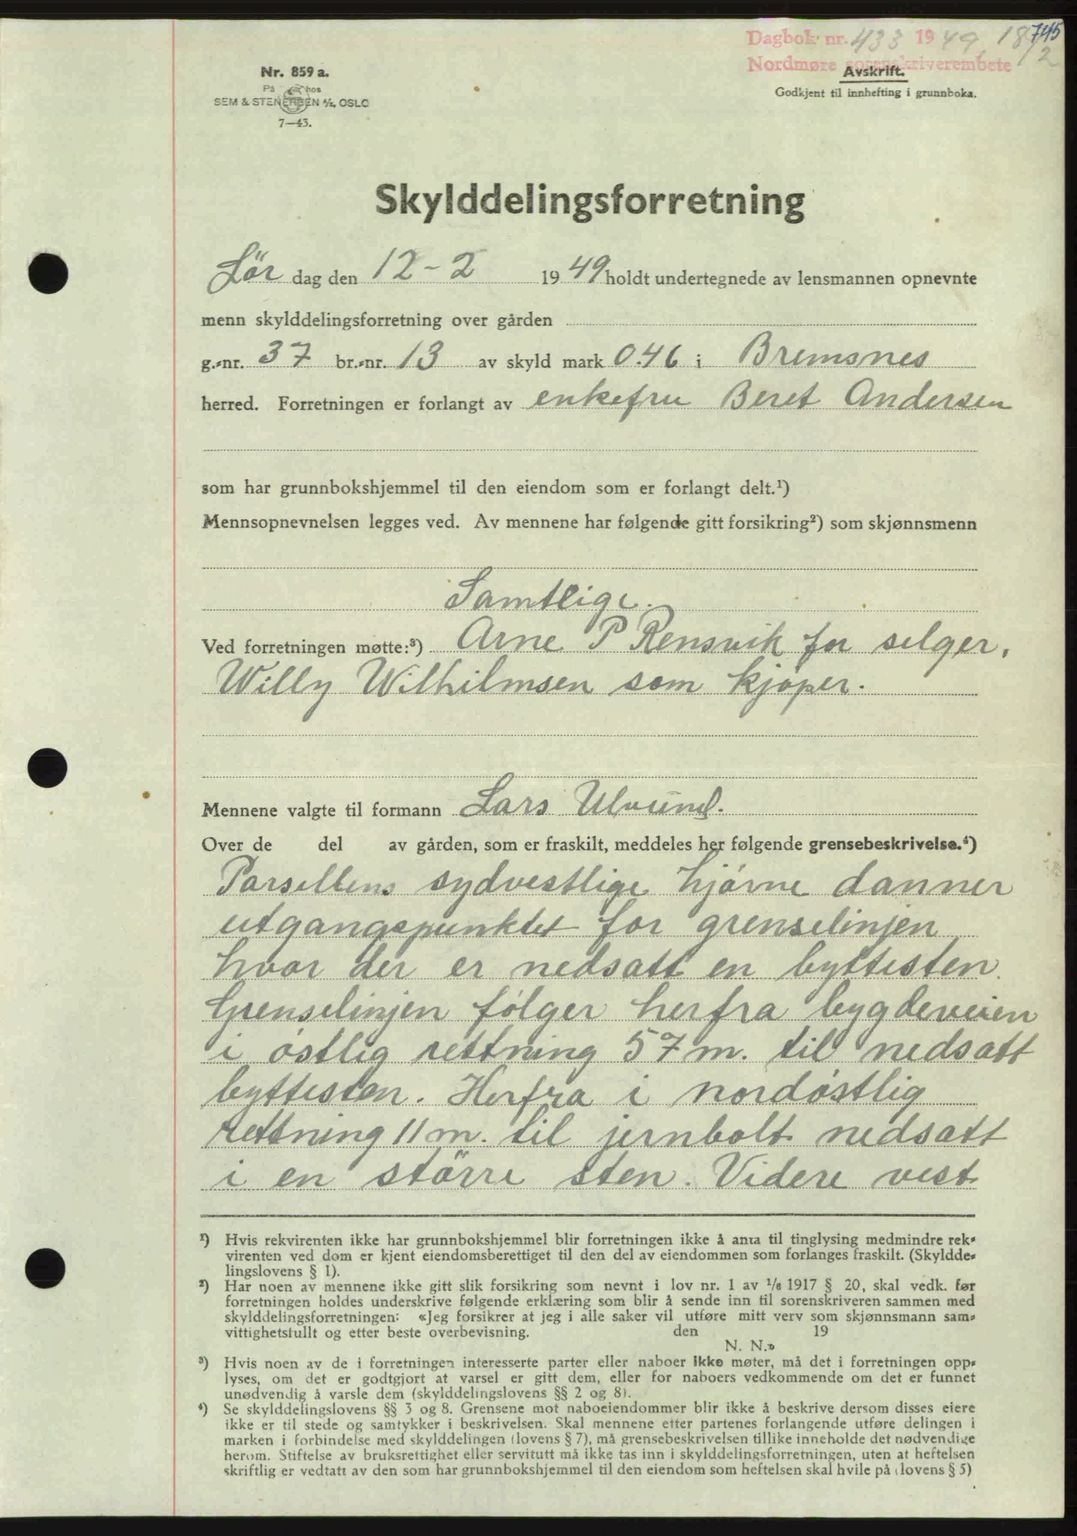 745
Dagbok nr. 433 1949, 18/2
Nordmøre sorenskriverembete
Nr. 859 a.
På hos
SEM & STENERSEN A/S, OSLO
7—43.
Avskrift.
Godkjent til innhefting i grunnboka.
Skylddelingsforretning
Lør dag den 12-2 1949 holdt undertegnede av lensmannen opnevnte
menn skylddelingsforretning over gården
g.-nr. 37 br.-nr. 13 av skyld mark 0.46 i Bremsnes
herred. Forretningen er forlangt av enkefru Beret Andersen
som har grunnbokshjemmel til den eiendom som er forlangt delt.¹)
Mennsopnevnelsen legges ved. Av mennene har følgende gitt forsikring²) som skjønnsmenn
Samtlige.
Ved forretningen møtte:³) Arne P Rensvik for selger,
Willy Wilhilmsen som kjøper.
Mennene valgte til formann Lars Ulvund.
Over de del av gården, som er fraskilt, meddeles her følgende grensebeskrivelse.⁴)
Parsellens sydvestlige hjørne danner
utgangspunktet for grenselinjen
hvor der er nedsatt en byttesten.
Grenselinjen følger herfra bygdeveien
i østlig rettning 57 m. til nedsatt
byttesten. Herfra i nordøstlig
rettning 11 m. til jernbolt nedsatt
i en større sten. Videre vest
¹) Hvis rekvirenten ikke har grunnbokshjemmel blir forretningen ikke å anta til tinglysing medmindre rek-
virenten ved dom er kjent eiendomsberettiget til den del av eiendommen som forlanges fraskilt. (Skyldde-
lingslovens § 1).
²) Har noen av mennene ikke gitt slik forsikring som nevnt i lov nr. 1 av 1/6 1917 § 20, skal vedk. før
forretningen holdes underskrive følgende erklæring som blir å sende inn til sorenskriveren sammen med
skylddelingsforretningen: «Jeg forsikrer at jeg i alle saker vil utføre mitt verv som skjønnsmann sam-
vittighetsfullt og etter beste overbevisning. den 19
N. N.»
³) Hvis noen av de i forretningen interesserte parter eller naboer ikke møter, må det i forretningen opp-
lyses, om det er godtgjort at varsel er gitt dem, eller for naboers vedkommende om det er funnet
unødvendig å varsle dem (skylddelingslovens §§ 2 og 8).
⁴) Se skylddelingslovens §§ 3 og 8. Grensene mot naboeiendommer blir ikke å beskrive dersom disses eiere
ikke er til stede og samtykker i beskrivelsen. Skal mennene etter partenes forlangende utføre delingen i
marken i forbindelse med skylddelingen (lovens § 7), må grensebeskrivelsen tillike inneholde det nødvendige
herom. Stiftelse av bruksrettighet eller servitutt må ikke tas inn i skylddelingsforretningen, uten at heftelsen
skriftlig er vedtatt av den som har grunnbokshjemmel til den eiendom som heftelsen skal hvile på (lovens § 5)